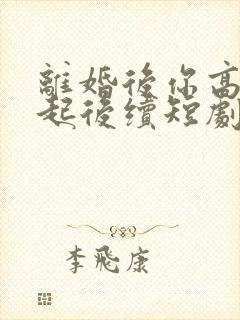 離婚後你高
起後續短劇
李飛康